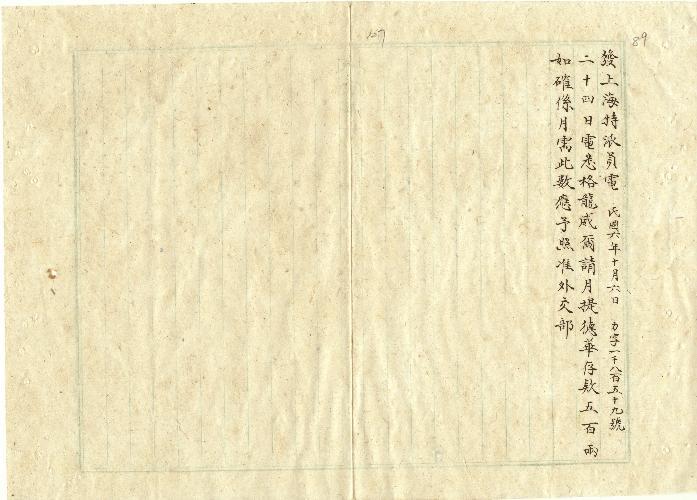 發上海特派員電 民國六年十月六日 力字一千八百五十九號
二十四日電悉格龍威爾請月提德華存款五百兩
如確係月需此數應予照准外交部
107
89